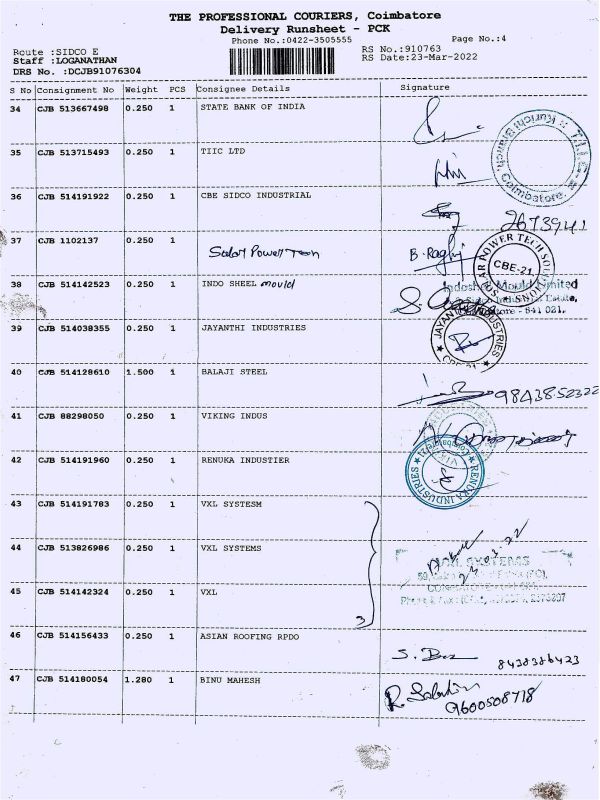 THE PROFESSIONAL COURIERS, Coimbatore
Delivery Runsheet - PCK
Phone No.:0422-3505555
Page No.:4
Route :SIDCO E
RS No.:910763
Staff :LOGANATHAN
RS Date:23-Mar-2022
DRS No. :DCJB91076304
S No Consignment No Weight PCS Consignee Details Signature
34 CJB 513667498 0.250 1 STATE BANK OF INDIA
35 CJB 513715493 0.250 1 TIIC LTD
Kurichi Branch, Coimbatore
36 CJB 514191922 0.250 1 CBE SIDCO INDUSTRIAL
2673941
37 CJB 1102137 0.250 1
B. Raghj
POWER TECH
CBE-21
38 CJB 514142523 0.250 1 INDO SHEEL mould
Mould Limited
Estate,
641 021.
39 CJB 514038355 0.250 1 JAYANTHI INDUSTRIES
40 CJB 514128610 1.500 1 BALAJI STEEL
9843852322
41 CJB 88298050 0.250 1 VIKING INDUS
42 CJB 514191960 0.250 1 RENUKA INDUSTIER
RENUKA INDUSTRIES
43 CJB 514191783 0.250 1 VXL SYSTESM
44 CJB 513826986 0.250 1 VXL SYSTEMS
23.03.22
SYSTEMS
45 CJB 514142324 0.250 1 VXL
3
46 CJB 514156433 0.250 1 ASIAN ROOFING RPDO
8438386423
47 CJB 514180054 1.280 1 BINU MAHESH
9600508718